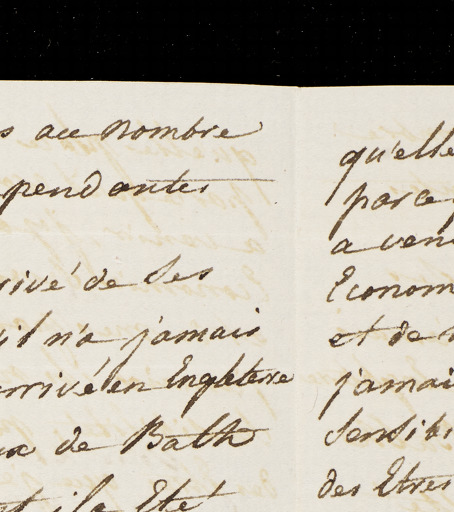 s au Nombre
pendantes
rivé de Ses
il n'a jamais
arrivé en Engleterre
ux de Bath
et il a Eté
qu'elle
parce
a ven
Econom
et de
jamai
Sensibi
des Etres